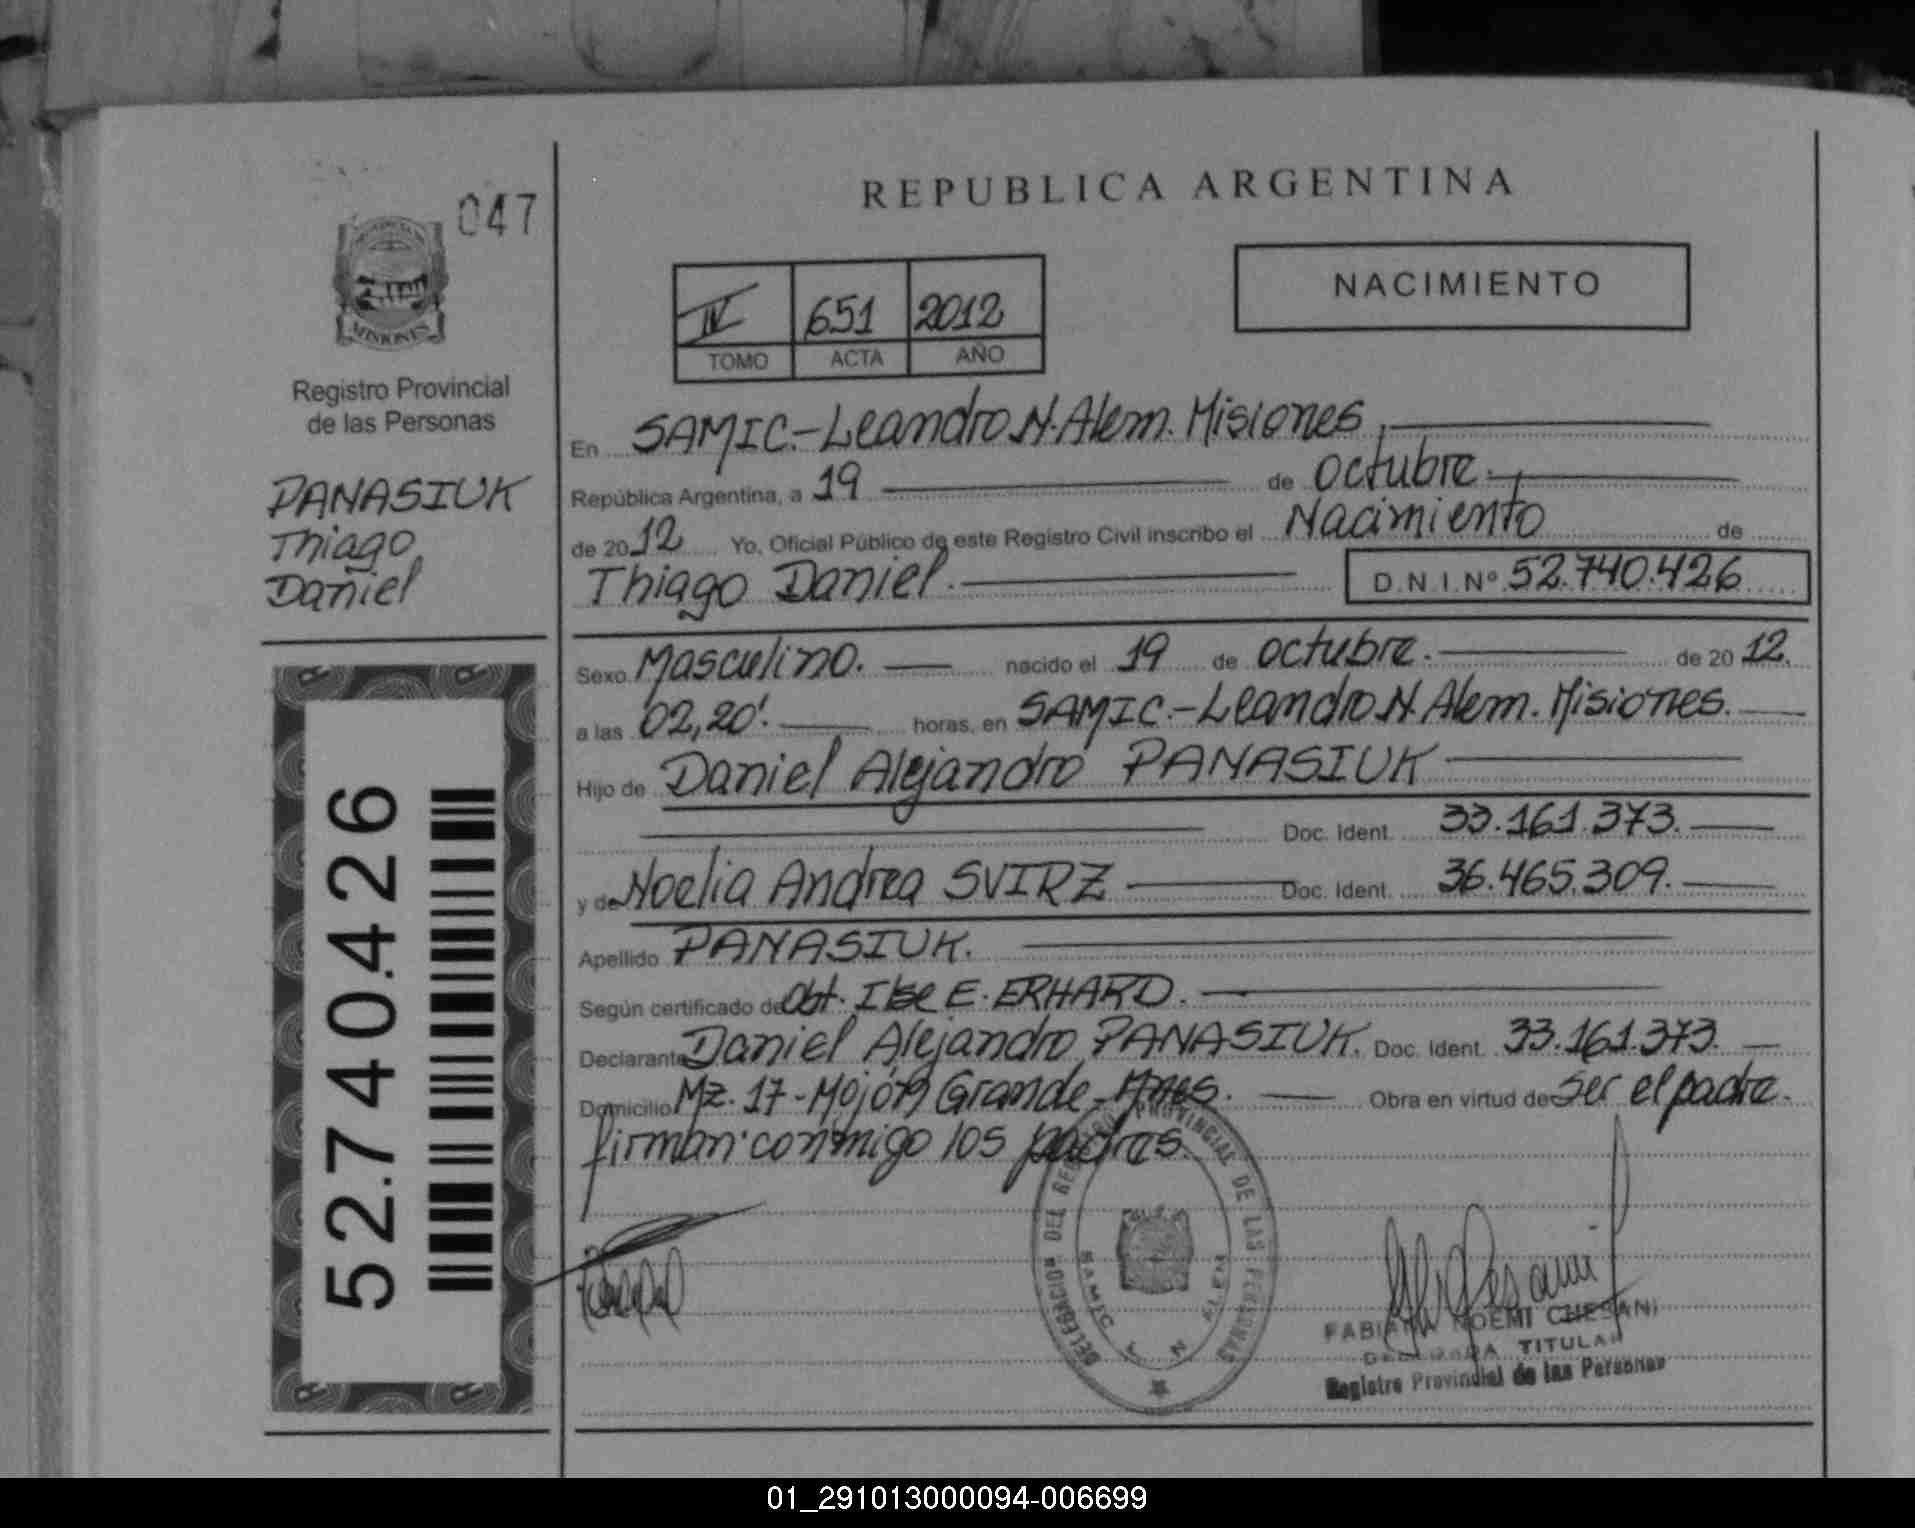 047
MISIONES
Registro Provincial
de las Personas
PANASIUK
Thiago
Daniel
52.740.426
REPUBLICA ARGENTINA
NACIMIENTO
IV 651 2012
TOMO ACTA AÑO
En SAMIC.-Leandro N. Alem. Misiones
República Argentina, a 19 de octubre.
de 2012 Yo, Oficial Público de este Registro Civil inscribo el Nacimiento de
Thiago Daniel. D.N.I.Nº 52.740.426
Sexo Masculino. nacido el 19 de octubre. de 2012.
a las 02,20'. horas, en SAMIC.-Leandro N. Alem. Misiones.
Hijo de Daniel Alejandro PANASIUK
Doc. Ident. 33.161.373.
y de Noelia Andrea SVIRZ Doc. Ident. 36.465.309.
Apellido PANASIUK.
Según certificado de Obt. Ilse E. ERHARD.
Declarante Daniel Alejandro PANASIUK. Doc. Ident. 33.161.373.
Domicilio Mz. 17-Mojón Grande-Mnes. Obra en virtud de ser el padre.
firman conmigo los padres.
DELEGACION DEL REGISTRO PROVINCIAL DE LAS PERSONAS
SAMIC L. N. ALEM
FABIANA NOEMI CHESANI
DELEGADA TITULAR
Registro Provincial de las Personas
01_291013000094-006699